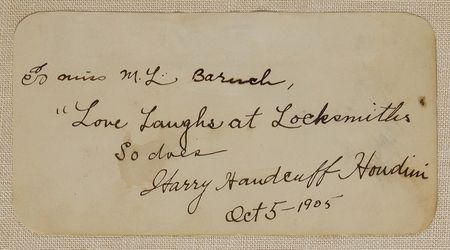 To miss M. L. Baruch,
"Love Laughs at Locksmiths
So does
Harry Handcuff Houdini
Oct 5-1905